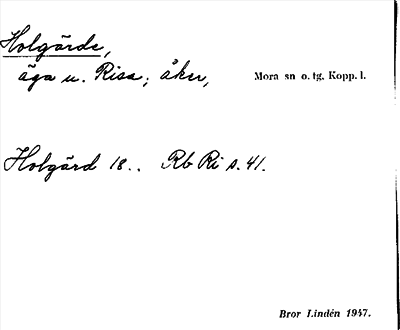 Holgärde,
äga u. Risa; åker, Mora sn o. tg, Kopp. l.
Holgärd 18.. Rb Ri s. 41.
Bror Lindén 1947.